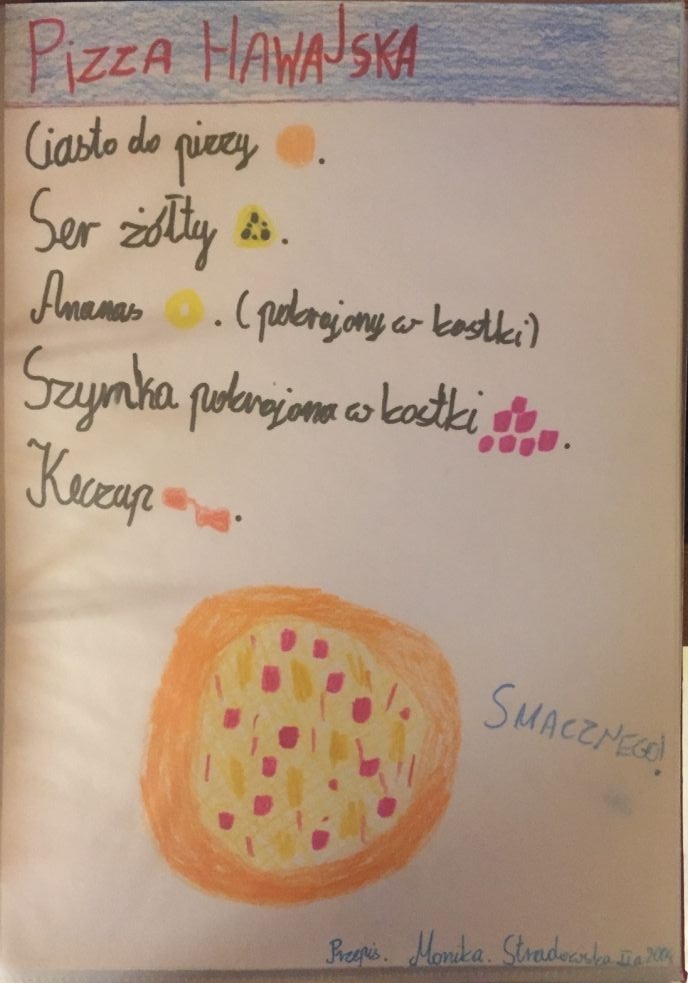 PIZZA HAWAJSKA
Ciasto do pizzy .
Ser żółty .
Ananas . (pokrojony w kostki)
Szymka pokrojona w kostki .
Keczap .
SMACZNEGO!
Przepis. Monika. Stradowska IIa 2004